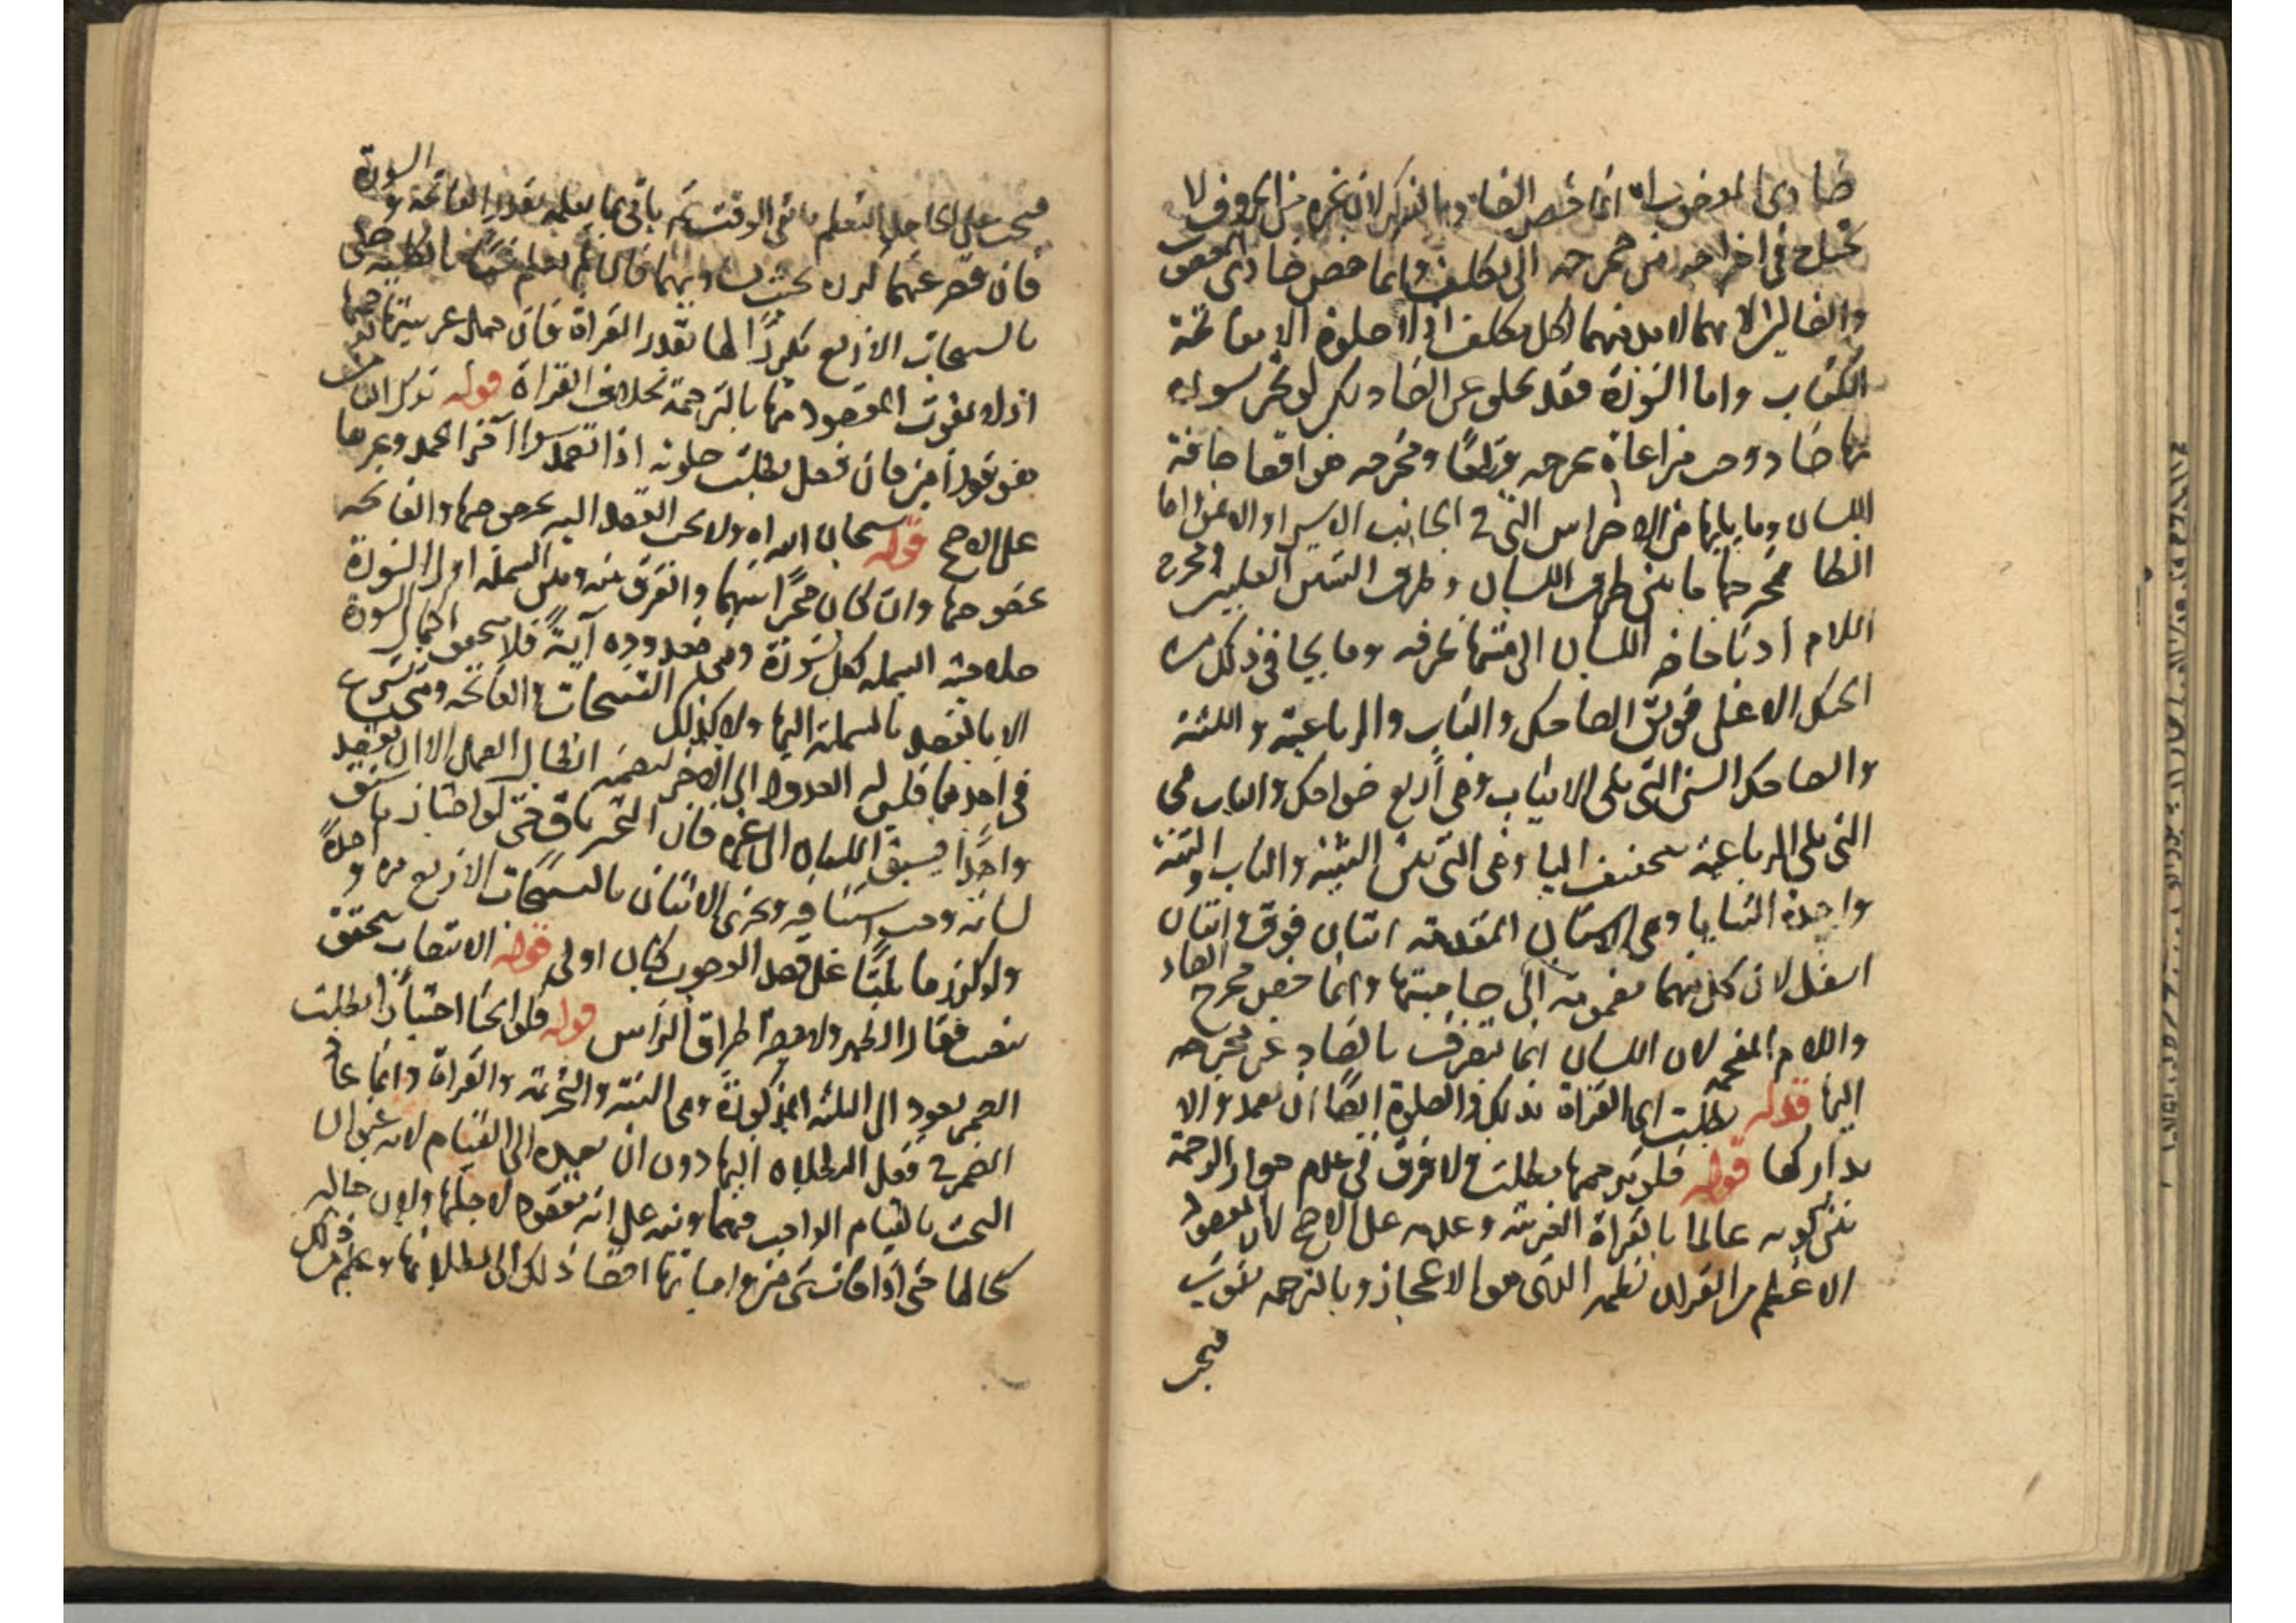 ضادي المغضوب اه انما خص الضاد بالذكر لان غيره من الحروف لا
يحتاج في اخراجه من مخرجه الى تكلف وانما خص ضادي المغضوب
والضالين لانهما لا بد منهما لكل مكلف اذ لا صلوة الا بفاتحة
الكتاب واما السورة فقد تخلو عن الضاد لكن لو تخير سورة
بها ضاد وجب مراعاة مخرجه قطعًا ومخرجه من اقصا حافة
اللسان وما يليها من الاضراس التي في الجانب الايسر او الايمن واما
الظا مخرجها ما بين طرف اللسان وطرف الثنيتين العليين ومخرج
اللام ادنا حافة اللسان الى منتها طرفه وما يحاذي ذلك من
الحنك الاعلى فويق الضاحك والناب والرباعية والثنية
والضاحك السن التي تلى الانياب وهي أربع ضواحك والناب هي
التي تلي الرباعية بتخفيف اليا وهي التي بين الثنية والناب والثنية
واحدة الثنايا وهي الاسنان المتقدمة اثنان فوق واثنان
اسفل لان كل منهما مضمومة الى صاحبتها وانما خص مخرج الضاد
واللام المفخمة لان اللسان انما ينحرف بالضاد عن مخرجه
اليها قوله بطلت اى القراة بذلك والصلوة ايضًا ان تعمد والا
تداركها قوله فلو ترجمها بطلت ولا فرق في عدم جواز الترجمة
بين كونه عالما بالقراة العربية وعدمه على الاصح لان المقصود
الاعظم من القران نظمه الذي هو الاعجاز وبالترجمه يفوت
فيجب
فيجب على الجاهل التعلم ما بقي الوقت ثم ياتي بما يعلمه بقدر الفاتحة والسورة
فان قصر عنهما كرره بحيث يساويهما فان لم يعلم شيئًا بالكلية
بالتسبيحات الاربع مكررًا لها بقدر القراة فان جهل عربيتها ترجمها
اذ لا يفوت المقصود منها بالترجمة بخلاف القراة قوله
هو قول امين فان فعل بطلت صلوته اذا تعمد سوا آخر الحمد وغيرها
على الاصح قوله سبحان الله اه ولا يجب القصد اليه بخصوصها والفاتحه
بخصوصها وان كان مخيرًا بينهما والفرق بينه وبين البسملة اول السورة
صلاحية البسملة لكل سورة وهي معدوده آيةً فلا يتحقق اكمال السورة
الا بالقصد بالبسملة اليها ولا كذلك التسبيحات والفاتحه ومتى شرع
في احدهما فليس له العدول الى الاخر لتضمنه ابطال العمل الا ان يقصد
واحدًا فيسبق اللسان الى غيره فان التخير باق حتى لو اختار ما سبق
لسانه وجب استئنافه ويجزي الاتيان بالتسبيحات الاربع مرة واحدةً
ولو كررها ثلثًا على قصد الوجوب كان اولى قوله الانتصاب يتحقق
بنصب فقار الظهر ولا يضر اطراق الراس قوله فلو انحنا اختيارًا بطلت
الضمير يعود الى الثلثه المذكورة وهي النية والتحريمة والقراة وانما عاد
الضمير في فعل البطلان اليها دون ان يعيده الى القيام لانه
البحث بالقيام الواجب فيهما ونبه على انه مقصود لاجلها ولان حاله
كحالها حتى اذا فات شى من واجباتها اقتضا ذلك الى بطلانها وعلم من ذلك